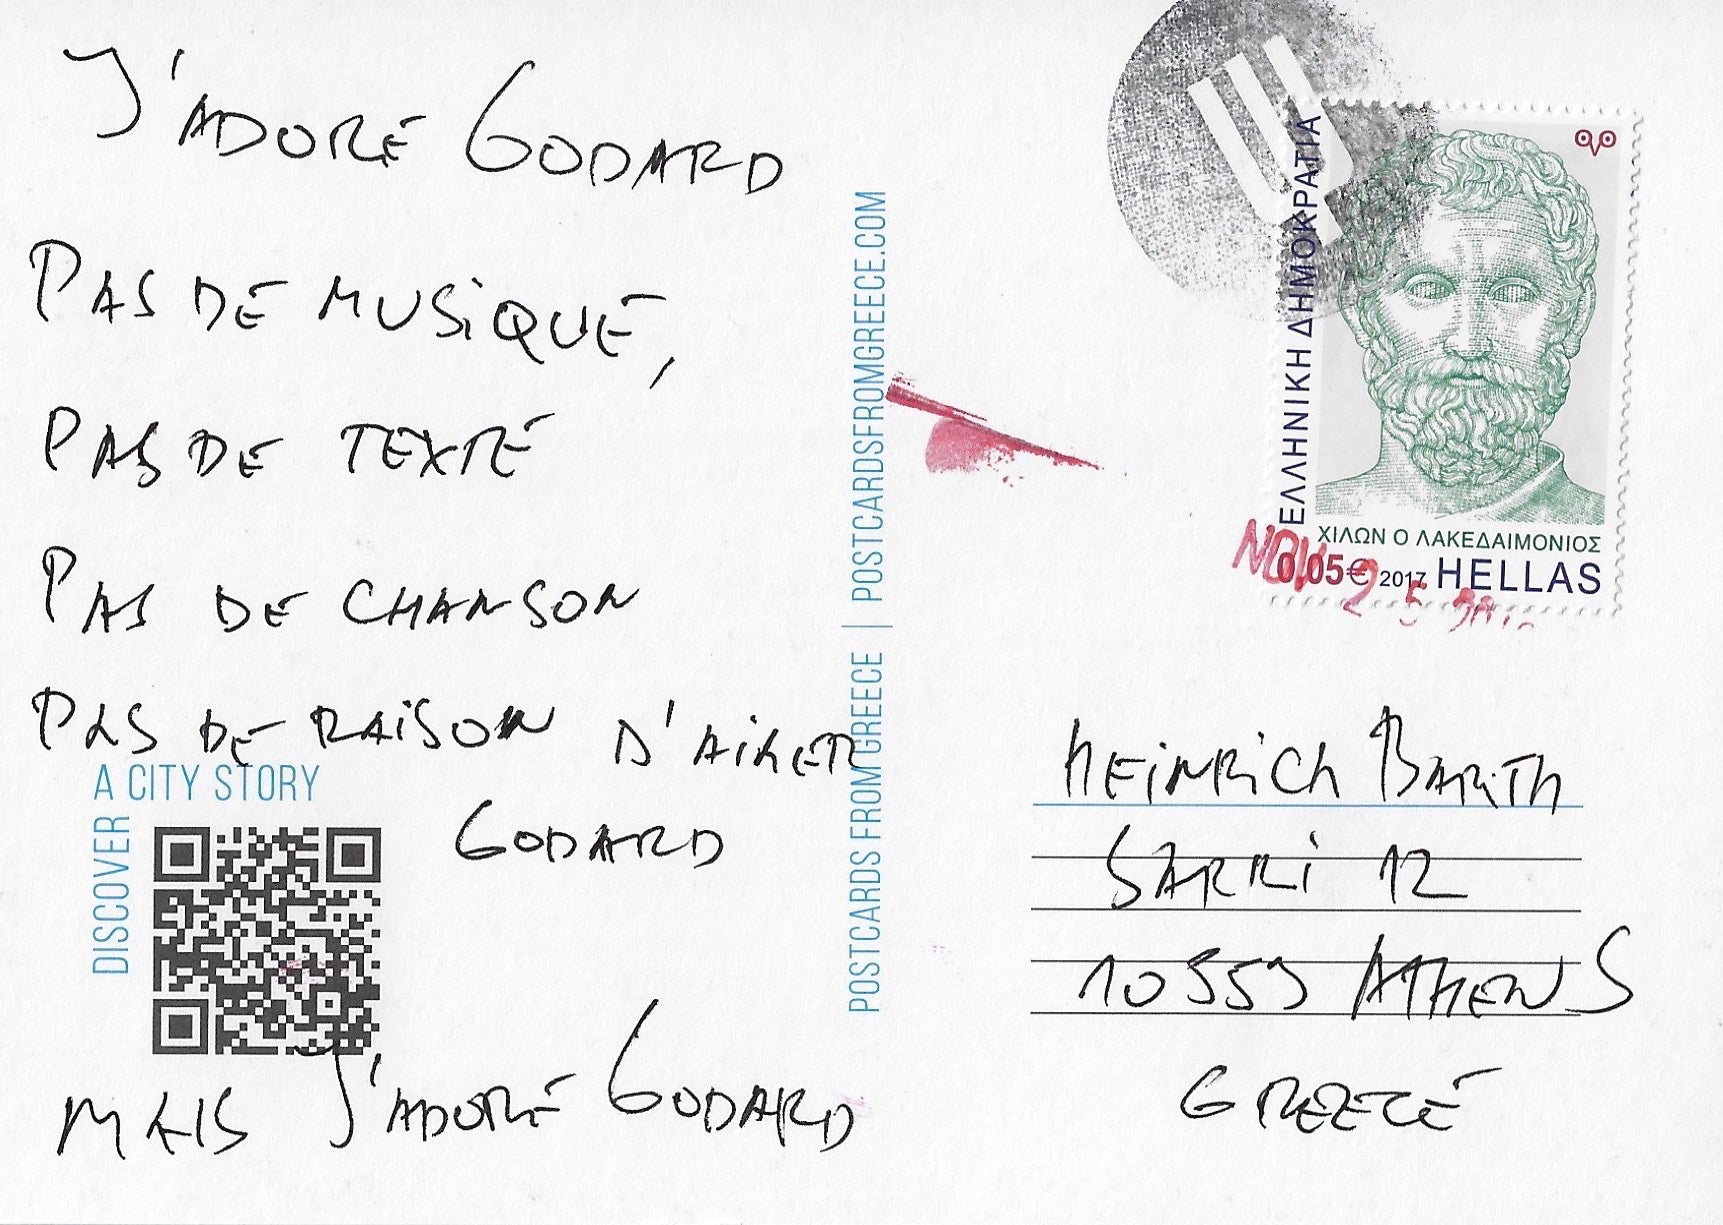 J'ADORE GODARD
PAS DE MUSIQUE,
PAS DE TEXTE
PAS DE CHANSON
PAS DE RAISON D'AIMER
GODARD
MAIS J'ADORE GODARD
DISCOVER
A CITY STORY
POSTCARDS FROM GREECE | POSTCARDSFROMGREECE.COM
ΕΛΛΗΝΙΚΗ ΔΗΜΟΚΡΑΤΙΑ
ΧΙΛΩΝ Ο ΛΑΚΕΔΑΙΜΟΝΙΟΣ
0,05€ 2017 HELLAS
NOV 25
HEINRICH BARTH
SARRI 12
10553 ATHENS
GREECE